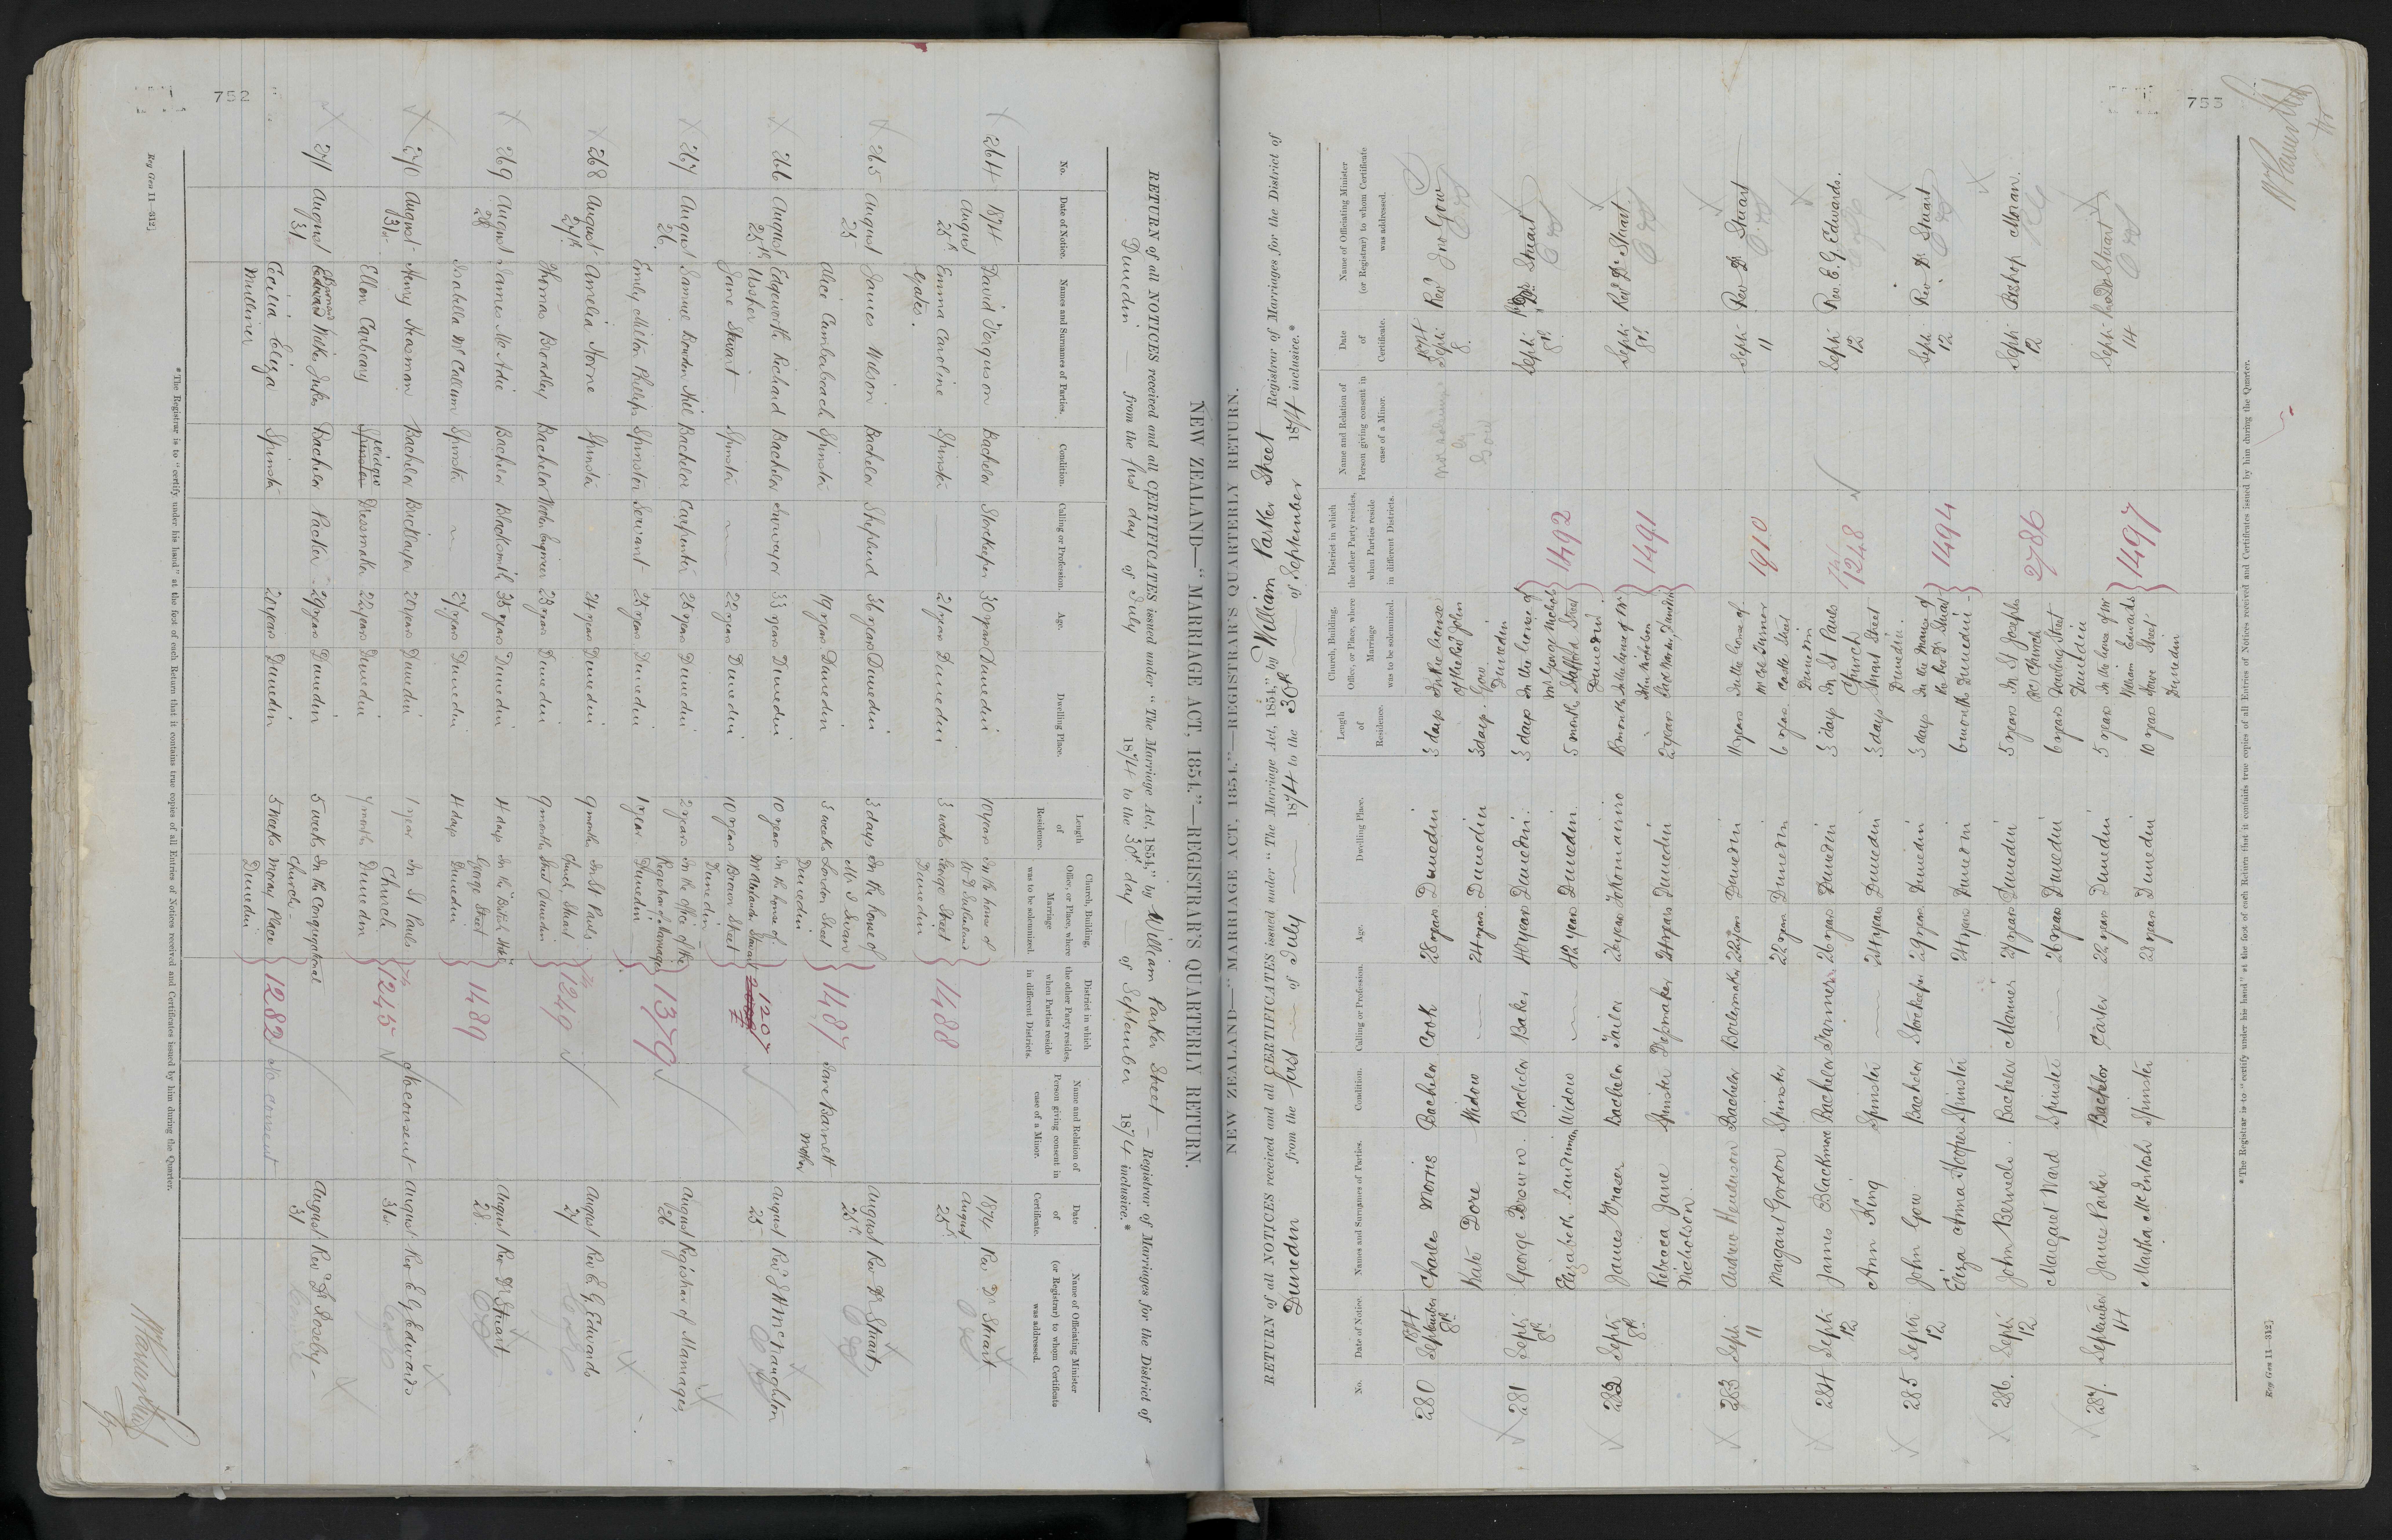 752
NEW ZEALAND—"MARRIAGE ACT, 1854."—REGISTRAR'S QUARTERLY RETURN.
RETURN of all NOTICES received and all CERTIFICATES issued under "The Marriage Act, 1854," by William Parker Street — Registrar of Marriages for the District of
Dunedin — from the first day of July 1874 to the 30th day of September 1874 inclusive.*
No. Date of Notice. Names and Surnames of Parties. Condition. Calling or Profession. Age. Dwelling Place. Length of Residence. Church, Building, Office, or Place, where Marriage was to be solemnized. District in which the other Party resides, when Parties reside in different Districts. Name and Relation of Person giving consent in case of a Minor. Date of Certificate. Name of Officiating Minister (or Registrar) to whom Certificate was addressed.
264 1874 August 25th David Ferguson Bachelor Storekeeper 30 years Dunedin 10 years In the house of 1488 1874 August 25th Rev Dr Stuart
Emma Caroline Yates. Spinster 21 years Dunedin 3 weeks George Street Dunedin
265 August 25 James Wilson Bachelor Shepherd 36 years Dunedin 3 days In the house of 1487 Jane Barnett Mother August 25th Rev Dr Stuart
Alice Cumberbeach Spinster — 19 years Dunedin 3 weeks London Street Dunedin
266 August 25th Edgeworth Richard Ussher Bachelor Surveyor 33 years Dunedin 10 years In the house of 1207 August 25 Rev
Jane Stuart Spinster 22 years Dunedin 10 years Brown Street Dunedin
267 August 26 Samuel Bowden Bachelor Carpenter 25 years Dunedin 2 years In the office of the 1379 August 26 Registrar of Marriages
Emily Milton Phillips Spinster Servant 25 years Dunedin 1 year Registrar of Marriages Dunedin
268 August 27th Amelia Horne Spinster 24 years Dunedin 9 months In St Pauls 1249 August 27 Rev E. G. Edwards
Thomas Broadley Bachelor 23 years Dunedin 9 months Church Stuart Street Dunedin
269 August 28 James McAdie Bachelor Blacksmith 35 years Dunedin 4 days In the British Hotel 1489 August 28 Rev Dr Stuart
Isabella McCallum Spinster 27 years Dunedin 4 days George Street Dunedin
270 August 31st Henry Bachelor Bricklayer 20 years Dunedin 1 year In St Pauls 1245 No consent August 31st Rev E G Edwards
Ellen Spinster Widow Dressmaker 22 years Dunedin 7 months Church Dunedin
271 August 31 Edward Bachelor Packer 29 years Dunedin 5 weeks In the Congregational Church 1282 No consent August 31 Rev Dr Roseby
Cecilia Eliza Milliner Spinster 20 years Dunedin 5 weeks Moray Place Dunedin
*The Registrar is to "certify under his hand" at the foot of each Return that it contains true copies of all Entries of Notices received and Certificates issued by him during the Quarter.
Reg Gen 11—312]
753
NEW ZEALAND—"MARRIAGE ACT, 1854."—REGISTRAR'S QUARTERLY RETURN.
RETURN of all NOTICES received and all CERTIFICATES issued under "The Marriage Act, 1854," by William Parker Street Registrar of Marriages for the District of
Dunedin from the first — of July — 1874 to the 30th — of September 1874 inclusive.*
No. Date of Notice. Names and Surnames of Parties. Condition. Calling or Profession. Age. Dwelling Place. Length of Residence. Church, Building, Office, or Place, where Marriage was to be solemnized. District in which the other Party resides, when Parties reside in different Districts. Name and Relation of Person giving consent in case of a Minor. Date of Certificate. Name of Officiating Minister (or Registrar) to whom Certificate was addressed.
280 1874 September 8th Charles Morris Bachelor Cook 28 years Dunedin 3 days In the house of the Rev John 1874 Septr 8. Revd Jno Gow
Kate Dore Widow — 24 years Dunedin 3 days Gow Dunedin
281 Septr 8th George Brown Bachelor Baker 40 years Dunedin 3 days In the house of 1492 Septr 8th Rev Dr Stuart
Elizabeth Widow — 42 years Dunedin 5 months Mr George Nichols Stafford Street Dunedin
282 Septr 8th James Fraser Bachelor Tailor 22 years Tokomairiro In the house of Mr 1491 Septr 8th Revd Dr Stuart
Rebecca Jane Nicholson. Spinster Dressmaker 24 years Dunedin 2 years Dunedin
283 Septr 11 Andrew Henderson Bachelor Boilermaker 22 years Dunedin 11 years In the house of 1910 Septr 11 Rev Dr Stuart
Margaret Gordon Spinster 22 years Dunedin 6 years Castle Street Dunedin
284 Septr 12 James Blackmore Bachelor Farmer 26 years Dunedin 3 days In St Pauls Church 1248 Septr 12 Rev. E. G. Edwards.
Ann King Spinster — 24 years Dunedin 3 days Stuart Street Dunedin.
285 Septr 12 John Gow Bachelor Storekeeper 29 years Dunedin 3 days In the Manse of 1494 Septr 12 Rev Dr Stuart
Eliza Anna Hooper Spinster 24 years Dunedin 6 months the Revd Dr Stuart Dunedin
286. Septr 12 John Bachelor Mariner 27 years Dunedin 5 years In St Josephs 2786 Septr 12 Bishop Moran.
Margaret Ward Spinster — 26 years Dunedin 6 years RC Church Rattray Street Dunedin
287. September 14 James Parker Bachelor Carter 22 years Dunedin 5 years In the house of Mr 1497 Septr 14 Rev Dr Stuart
Martha McIntosh Spinster 28 years Dunedin 10 years William Edwards Howe Street Dunedin
*The Registrar is to "certify under his hand" at the foot of each Return that it contains true copies of all Entries of Notices received and Certificates issued by him during the Quarter.
Reg Gen 11—312]